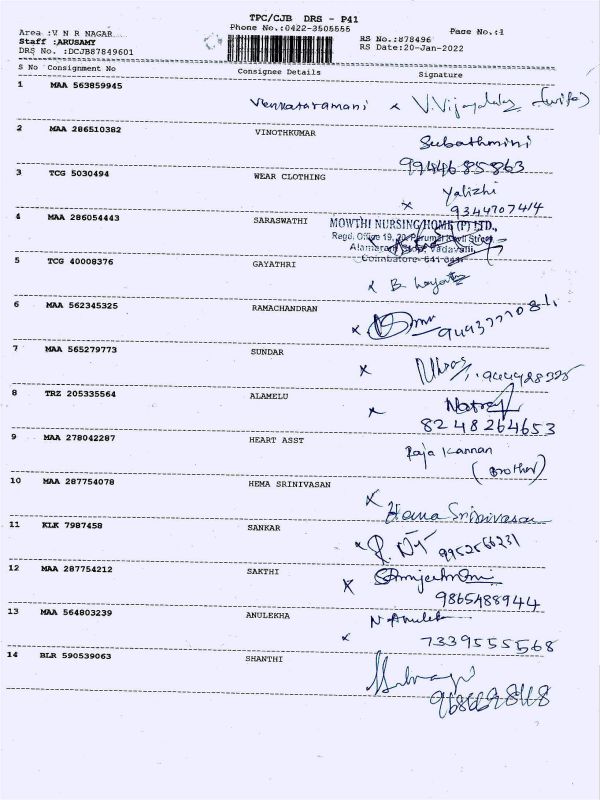 TPC/CJB DRS - P41
Phone No.:0422-3505555
Page No.:1
Area :V N R NAGAR
Staff :ARUSAMY
DRS No. :DCJB87849601
RS No.:878496
RS Date:20-Jan-2022
S No Consignment No Consignee Details Signature
1 MAA 563859945
Venkataramani x V.Vijayalaxmi (wife)
2 MAA 286510382 VINOTHKUMAR
Subathmini
9944685863
3 TCG 5030494 WEAR CLOTHING
x Yalizhi
9344707414
4 MAA 286054443 SARASWATHI
MOWTHI NURSING HOME (P) LTD.,
Regd. Office 19, 20, Perumal Kovil Street,
Vadavalli,
Coimbatore- 641 041.
5 TCG 40008376 GAYATHRI
x B.
6 MAA 562345325 RAMACHANDRAN
x
7 MAA 565279773 SUNDAR
x
8 TRZ 205335564 ALAMELU
x
8248264653
9 MAA 278042287 HEART ASST
Raja Kannan
(Brother)
10 MAA 287754078 HEMA SRINIVASAN
x Hema Srinivasan
11 KLK 7987458 SANKAR
x 9952566231
12 MAA 287754212 SAKTHI
x
9865488944
13 MAA 564803239 ANULEKHA
N Anulek
x 7339555568
14 BLR 590539063 SHANTHI